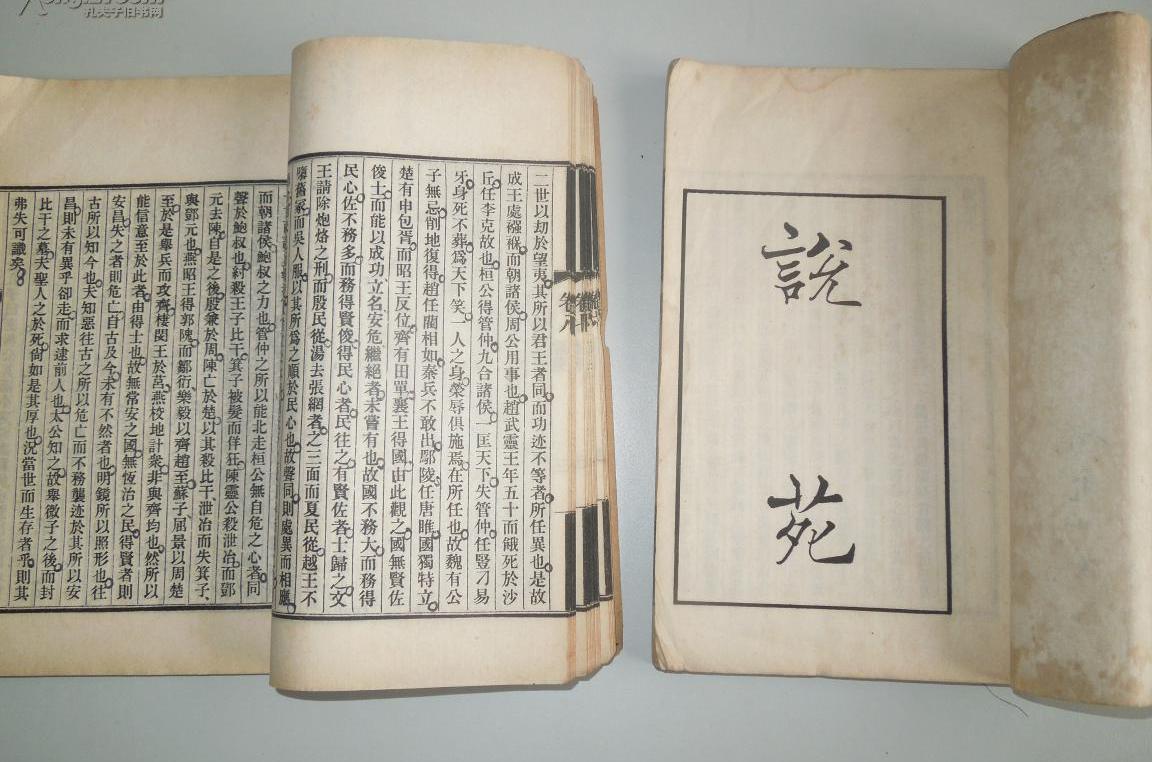 孔夫子旧书网
説
苑
二世以劫於望夷。其所以君王者同。而功迹不等者。所任異也。是故
成王處襁褓。而朝諸侯。周公用事也。趙武靈王年五十而餓死於沙
丘。任李克故也。桓公得管仲。九合諸侯。一匡天下。失管仲。任豎刁易
牙。身死不葬。爲天下笑。一人之身。榮辱俱施焉。在所任也。故魏有公
子無忌。削地復得。趙任藺相如。秦兵不敢出。鄢陵任唐睢。國獨特立。
楚有申包胥。而昭王反位。齊有田單。襄王得國。由此觀之。國無賢佐
俊士。而能以成功立名。安危繼絕者。未嘗有也。故國不務大。而務得
民心。佐不務多。而務得賢俊。得民心者。民往之。有賢佐者。士歸之。文
王請除炮烙之刑。而殷民從。湯去張網者。之三面而夏民從。越王不
隳舊冢。而吳人服。以其所爲之順於民心也。故聲同。則處異而相應。
而朝諸侯。鮑叔之力也。管仲之所以能北走桓公無自危之心者。同
聲於鮑叔也。紂殺王子比干。箕子被髮而佯狂。陳靈公殺泄冶。而鄧
元去陳。自是之後。殷兼於周。陳亡於楚。以其殺比干、泄冶而失箕子、
與鄧元也。燕昭王得郭隗。而鄒衍樂毅以齊趙至。蘇子屈景以周楚
至。於是舉兵而攻齊。棲閔王於莒。燕校地計衆。非與齊均也。然所以
能信意至於此者。由得士也。故無常安之國。無恆治之民。得賢者則
安昌。失之者則危亡。自古及今。未有不然者也。明鏡所以照形也。往
古所以知今也。夫知惡往古之所以危亡。而不務襲迹於其所以安
昌。則未有異乎卻走。而求逮前人也。太公知之。故舉微子之後。而封
比干之墓。夫聖人之於死。尙如是其厚也。況當世而生存者乎。則其
弗失可識矣。
卷八